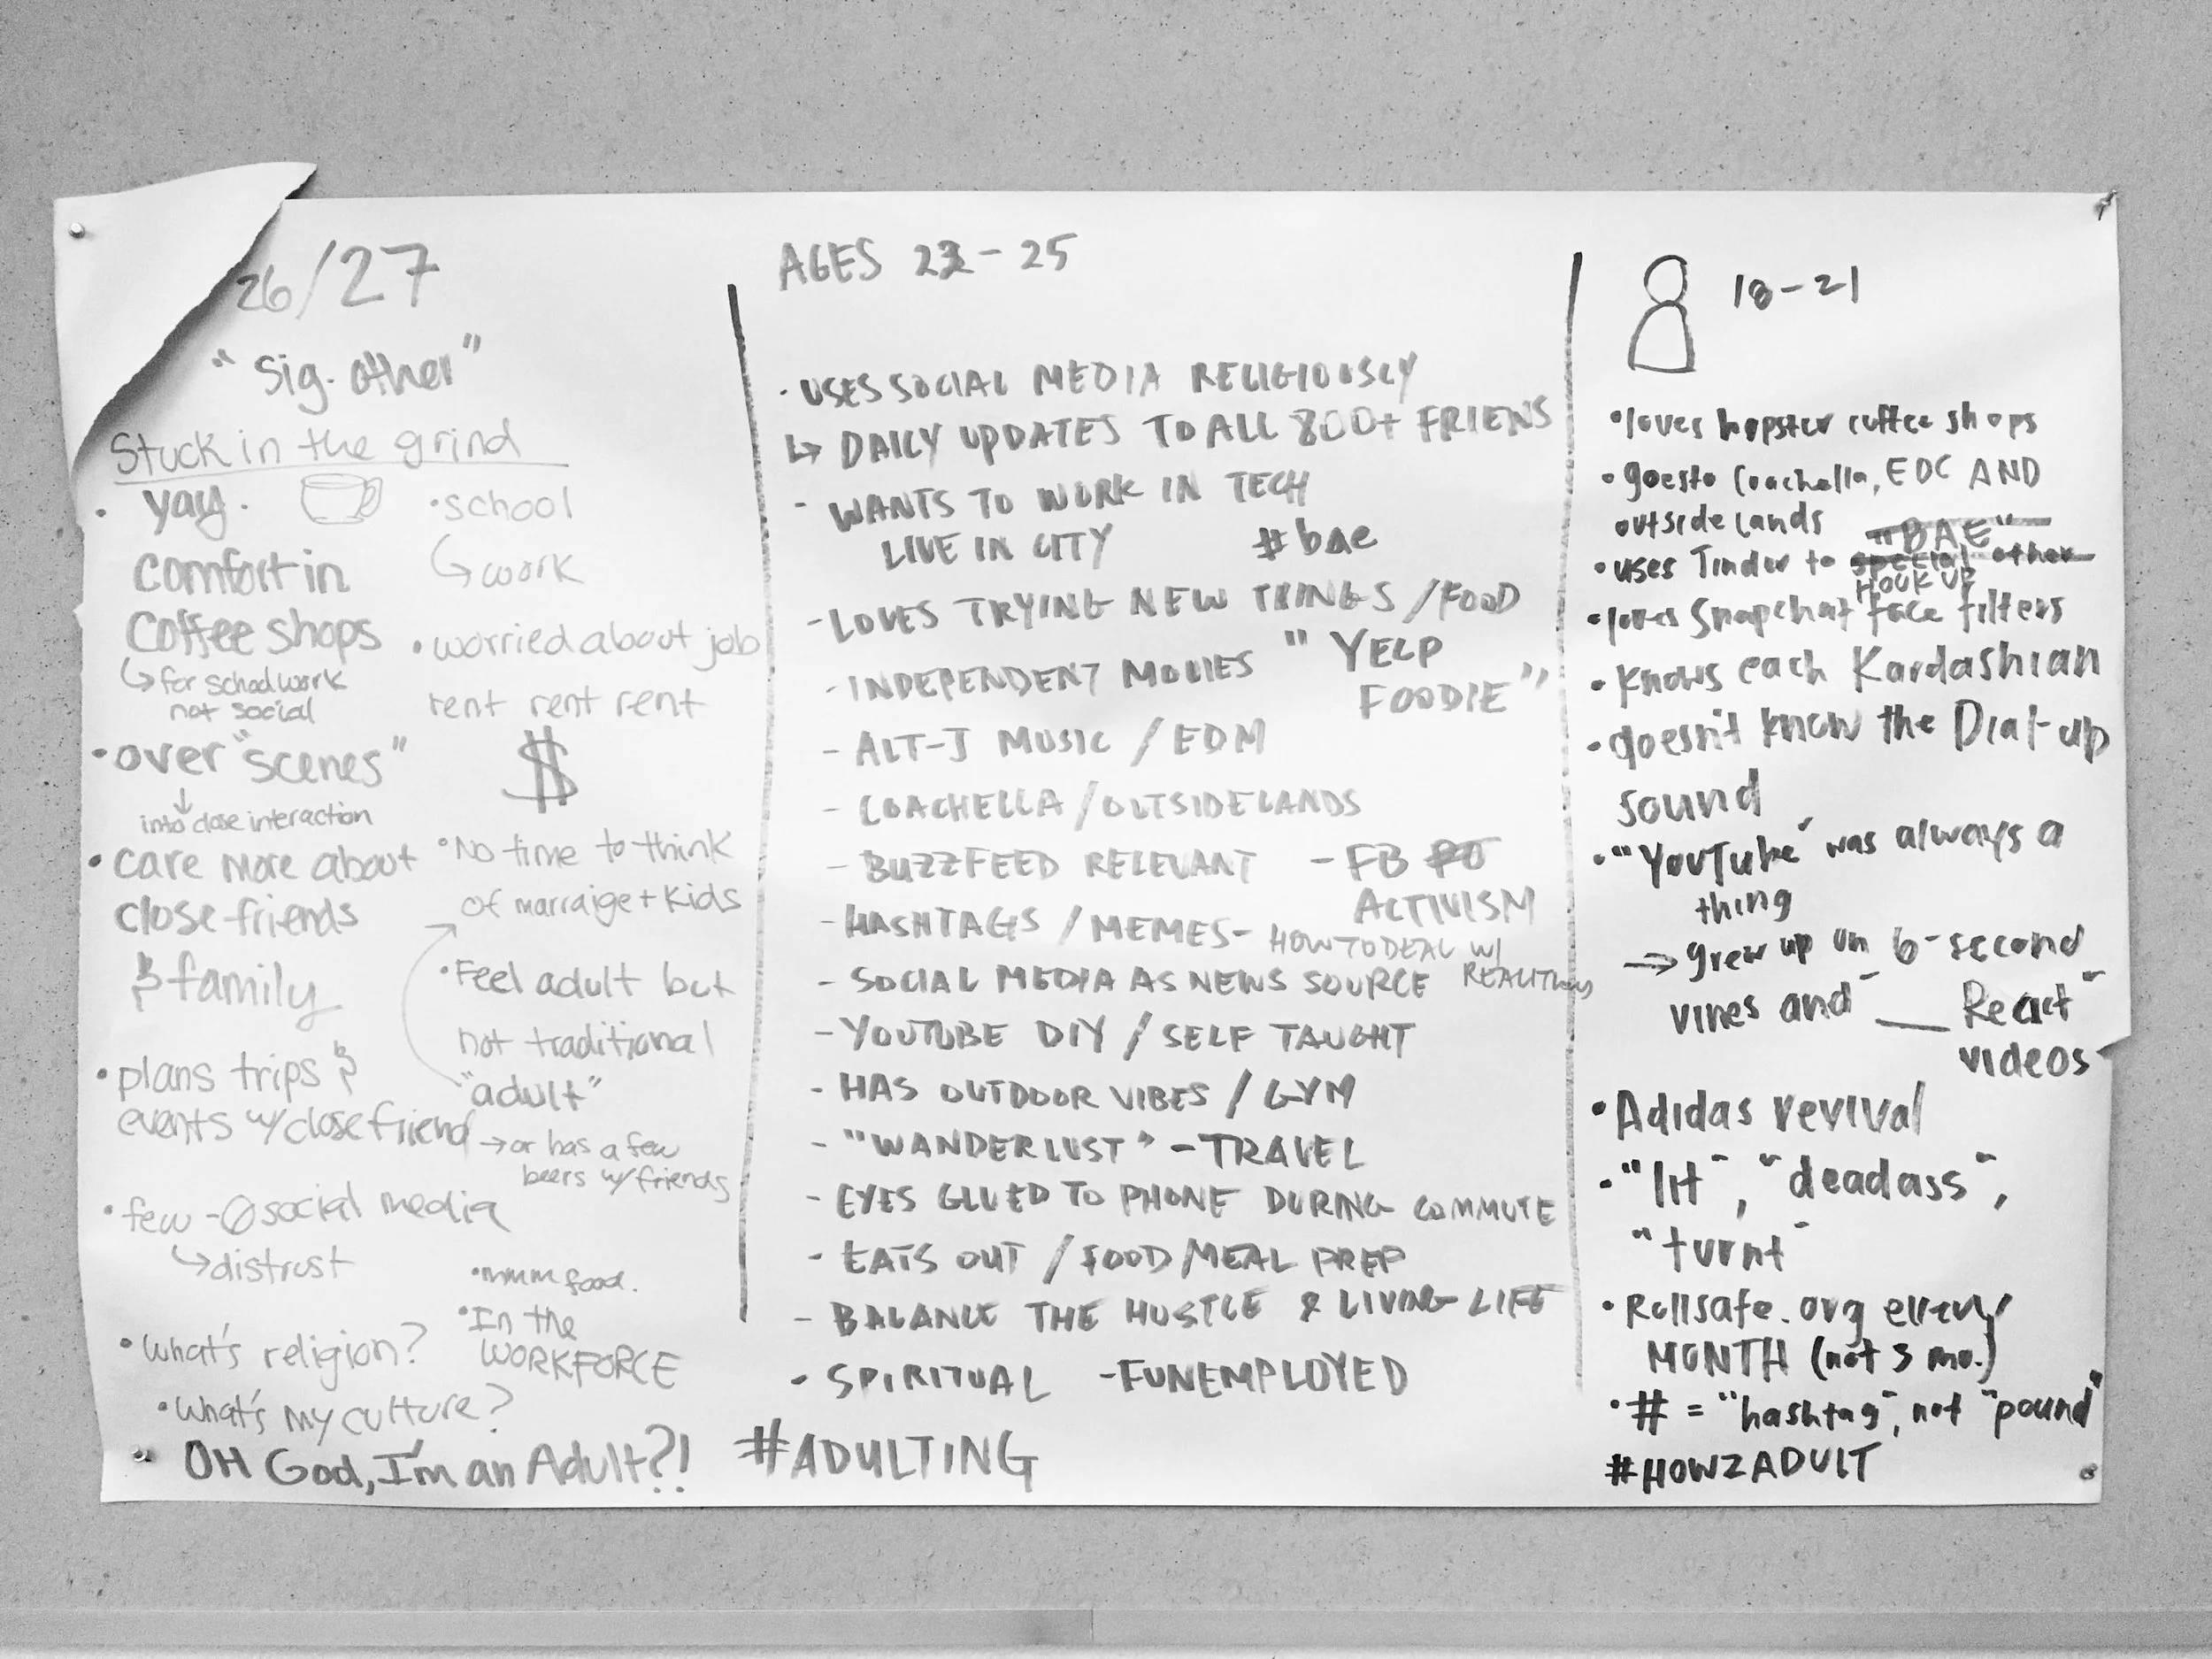 26/27
"Sig. other"
Stuck in the grind
• yay.
comfort in
coffee shops
↳ for school work
not social
• over "scenes"
↓
into close interaction
• care more about
close friends
& family
• plans trips &
events w/ close friend
→ or has a few
beers w/ friends
• few - Ø social media
↳ distrust
• What's religion?
• What's my culture?
OH God, I'm an Adult?!
• school
↳ work
• worried about job
rent rent rent
$
• No time to think
of marraige + kids
• Feel adult but
not traditional
"adult"
• mmm food.
• In the
WORKFORCE
AGES 22 - 25
• USES SOCIAL MEDIA RELIGIOUSLY
↳ DAILY UPDATES TO ALL 800+ FRIENS
- WANTS TO WORK IN TECH
LIVE IN CITY #bae
- LOVES TRYING NEW THINGS / FOOD
- INDEPENDENT MOVIES "YELP
FOODIE"
- ALT-J MUSIC / EDM
- COACHELLA / OUTSIDELANDS
- BUZZFEED RELEVANT - FB
ACTIVISM
- HASHTAGS / MEMES - HOW TO DEAL W/
REALITY
- SOCIAL MEDIA AS NEWS SOURCE
- YOUTUBE DIY / SELF TAUGHT
- HAS OUTDOOR VIBES / GYM
- "WANDERLUST" - TRAVEL
- EYES GLUED TO PHONE DURING COMMUTE
- EATS OUT / FOOD / MEAL PREP
- BALANCE THE HUSTLE & LIVING LIFE
- SPIRITUAL - FUNEMPLOYED
#ADULTING
18 - 21
• loves hopster coffee shops
• goes to Coachella, EDC AND
outside lands
"BAE"
• uses Tinder to special other
HOOK UP
• loves Snapchat face filters
• knows each Kardashian
• doesn't know the Dial-up
sound
• "YouTube" was always a
thing
→ grew up on 6-second
vines and "__ React"
videos
• Adidas revival
• "lit", "deadass",
"turnt"
• Rollsafe.org every
MONTH (not 3 mo.)
• # = "hashtag", not "pound"
#HOW2ADULT